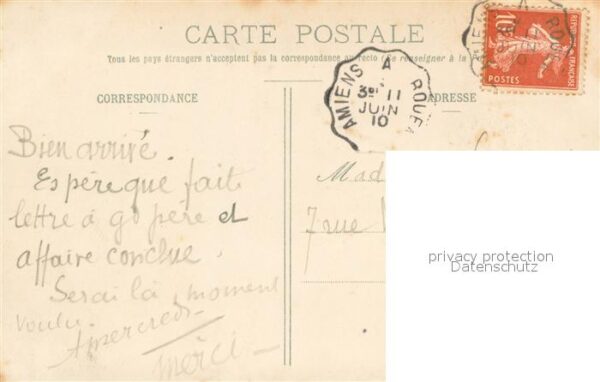 CARTE POSTALE
Tous les pays étrangers n'acceptent pas la correspondance au recto (Se renseigner à la Po
CORRESPONDANCE
ADRESSE
AMIENS A ROUEN
3º 11
JUIN
10
10
POSTES
FRANÇAISE
Bien arrivé.
Espère que fait
lettre à gd père et
affaire conclue.
Serai là moment
voulu.
A mercredi
merci
Mad
7 rue
privacy protection
Datenschutz